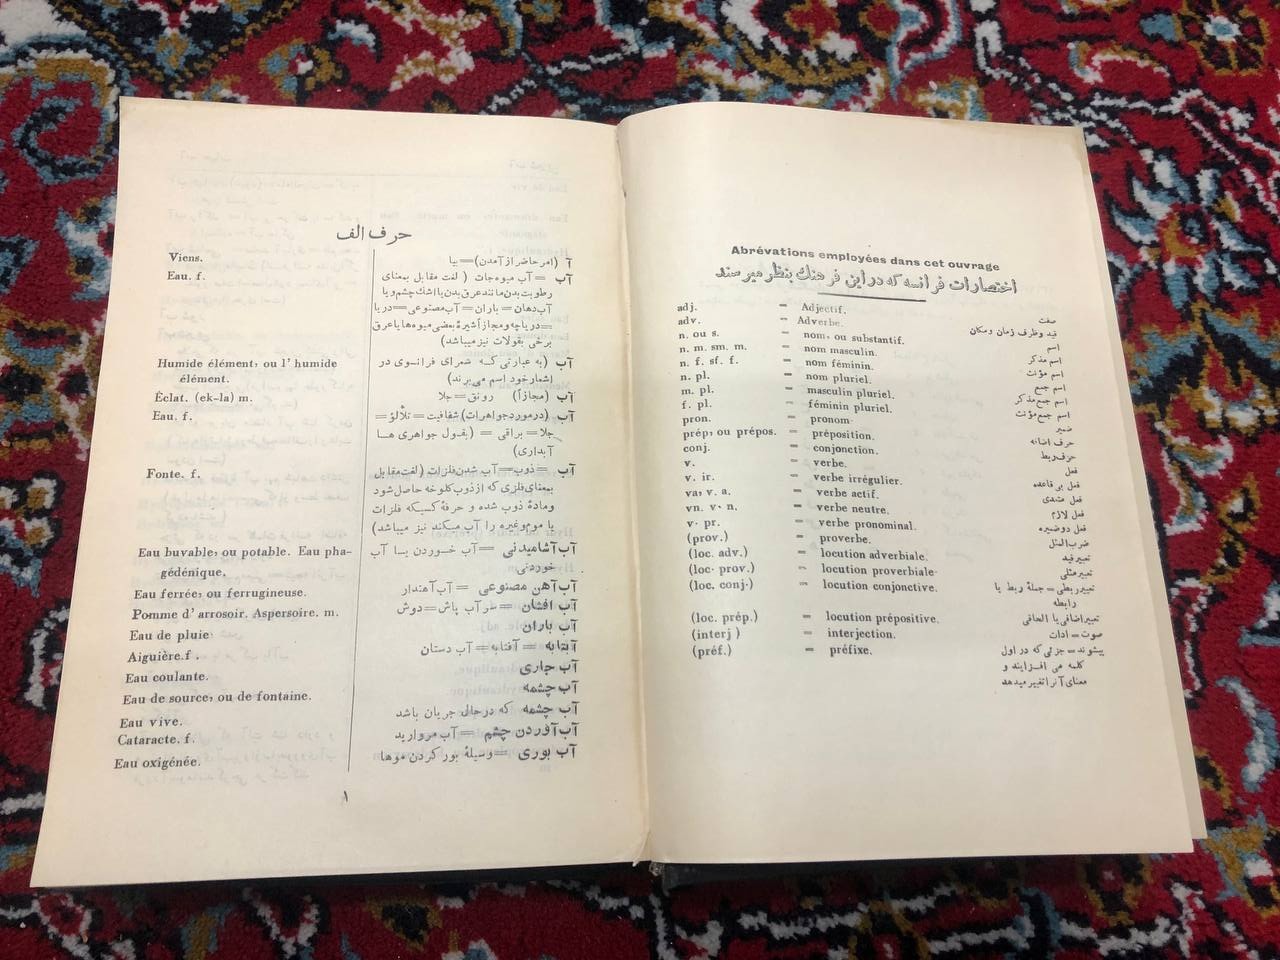 Abrévations employées dans cet ouvrage
اختصارات فرانسه که در این فرهنك بنظر میرسند
adj. = Adjectif. صفت
adv. = Adverbe. قید وظرف زمان ومکان
n. ou s. = nom, ou substantif. اسم
n. m. sm. m. = nom masculin. اسم مذکر
n. f. sf. f. = nom féminin. اسم مؤنث
n. pl. = nom pluriel. اسم جمع
m. pl. = masculin pluriel. اسم جمع مذکر
f. pl. = féminin pluriel. اسم جمع مؤنث
pron. = pronom. ضمیر
prép, ou prépos. = préposition. حرف اضافه
conj. = conjonction. حرف ربط
v. = verbe. فعل
v. ir. = verbe irrégulier. فعل بی قاعده
va, v. a. = verbe actif. فعل متعدی
vn. v. n. = verbe neutre. فعل لازم
v. pr. = verbe pronominal. فعل دوضمیره
(prov.) = proverbe. ضرب المثل
(loc. adv.) = locution adverbiale. تعبیر قید
(loc. prov.) = locution proverbiale تعبیر مثلی
(loc. conj.) = locution conjonctive. تعبیر ربطی = جملهٔ ربط یا
رابطه
(loc. prép.) = locution prépositive. تعبیر اضافی یا الحاقی
(interj) = interjection. صوت = ادات
(préf.) = préfixe. پیشوند = جزئی که در اول
کلمه می افزایند و
معنای آنرا تغییر میدهد
حرف الف
Viens. آ (امر حاضر از آمدن) = بیا
Eau. f. آب = آب میوه جات ( لغت مقابل بمعنای
رطوبت بدن مانند عرق بدن با اشك چشم و یا
آب دهان = باران = آب مصنوعی = دریا
= دریاچه و مجازاً شیرهٔ بعضی میوه ها یا عرق
برخی بقولات نیز میباشد)
Humide élément, ou l' humide آب (به عبارتی که شعرای فرانسوی در
élément. اشعار خود اسم می برند)
Éclat. (ek-la) m. آب (مجازاً) رونق = جلا
Eau. f. آب (در مورد جواهرات) شفافیت = تلألؤ =
جلا = براقی = (بقول جواهری ها
آبداری)
Fonte. f. آب = ذوب = آب شدن فلزات (لغت مقابل
بمعنای فلزی که از ذوب کلوخه حاصل شود
و مادهٔ ذوب شده و حرفهٔ کسیکه فلزات
یا موم وغیره را آب میکند نیز میباشد)
Eau buvable, ou potable. Eau pha- آب آشامیدنی = آب خوردن یا آب
gédénique. خوردنی
Eau ferrée, ou ferrugineuse. آب آهن مصنوعی = آب آهندار
Pomme d' arrosoir. Aspersoire. m. آب افشان = سر آب پاش = دوش
Eau de pluie آب باران
Aiguière.f. آبتابه = آفتابه = آب دستان
Eau coulante. آب جاری
Eau de source, ou de fontaine. آب چشمه
Eau vive. آب چشمه که در حال جریان باشد
Cataracte. f. آب آوردن چشم = آب مروارید
Eau oxigénée. آب بوری = وسیلهٔ بور کردن موها
۱